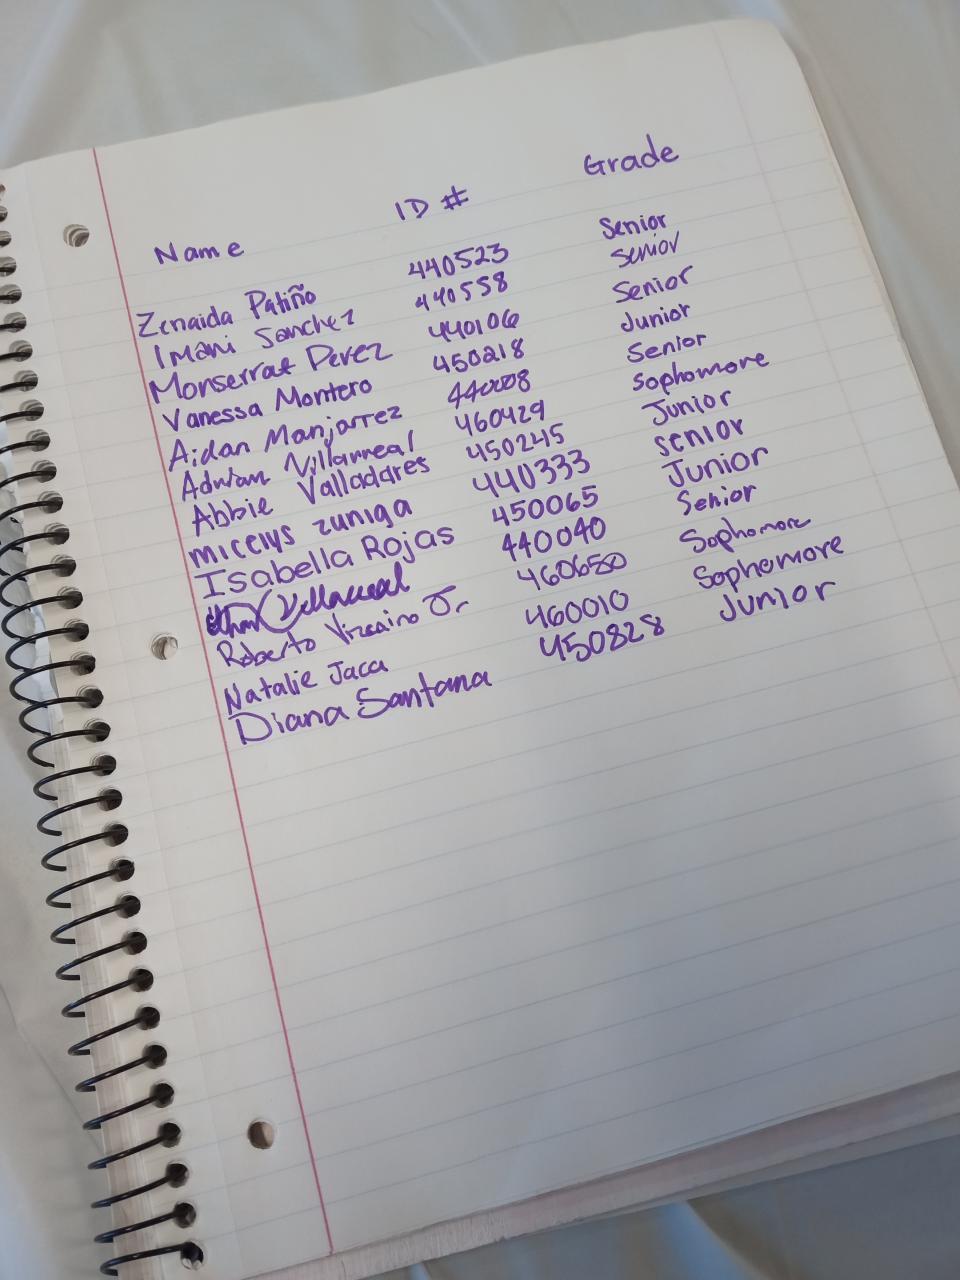 Name ID # Grade
Zenaida Patiño 440523 Senior
Imani Sanchez 440558 Senior
Monserrat Perez 440106 Senior
Vanessa Montero 450218 Junior
Aidan Manjarrez 440008 Senior
Adrian Villarreal 460429 Sophomore
Abbie Valladares 450245 Junior
micelys zuniga 440333 senior
Isabella Rojas 450065 Junior
Villarreal 440040 Senior
Roberto Vizcaino Jr 460650 Sophomore
Natalie Jaca 460010 Sophomore
Diana Santana 450828 Junior